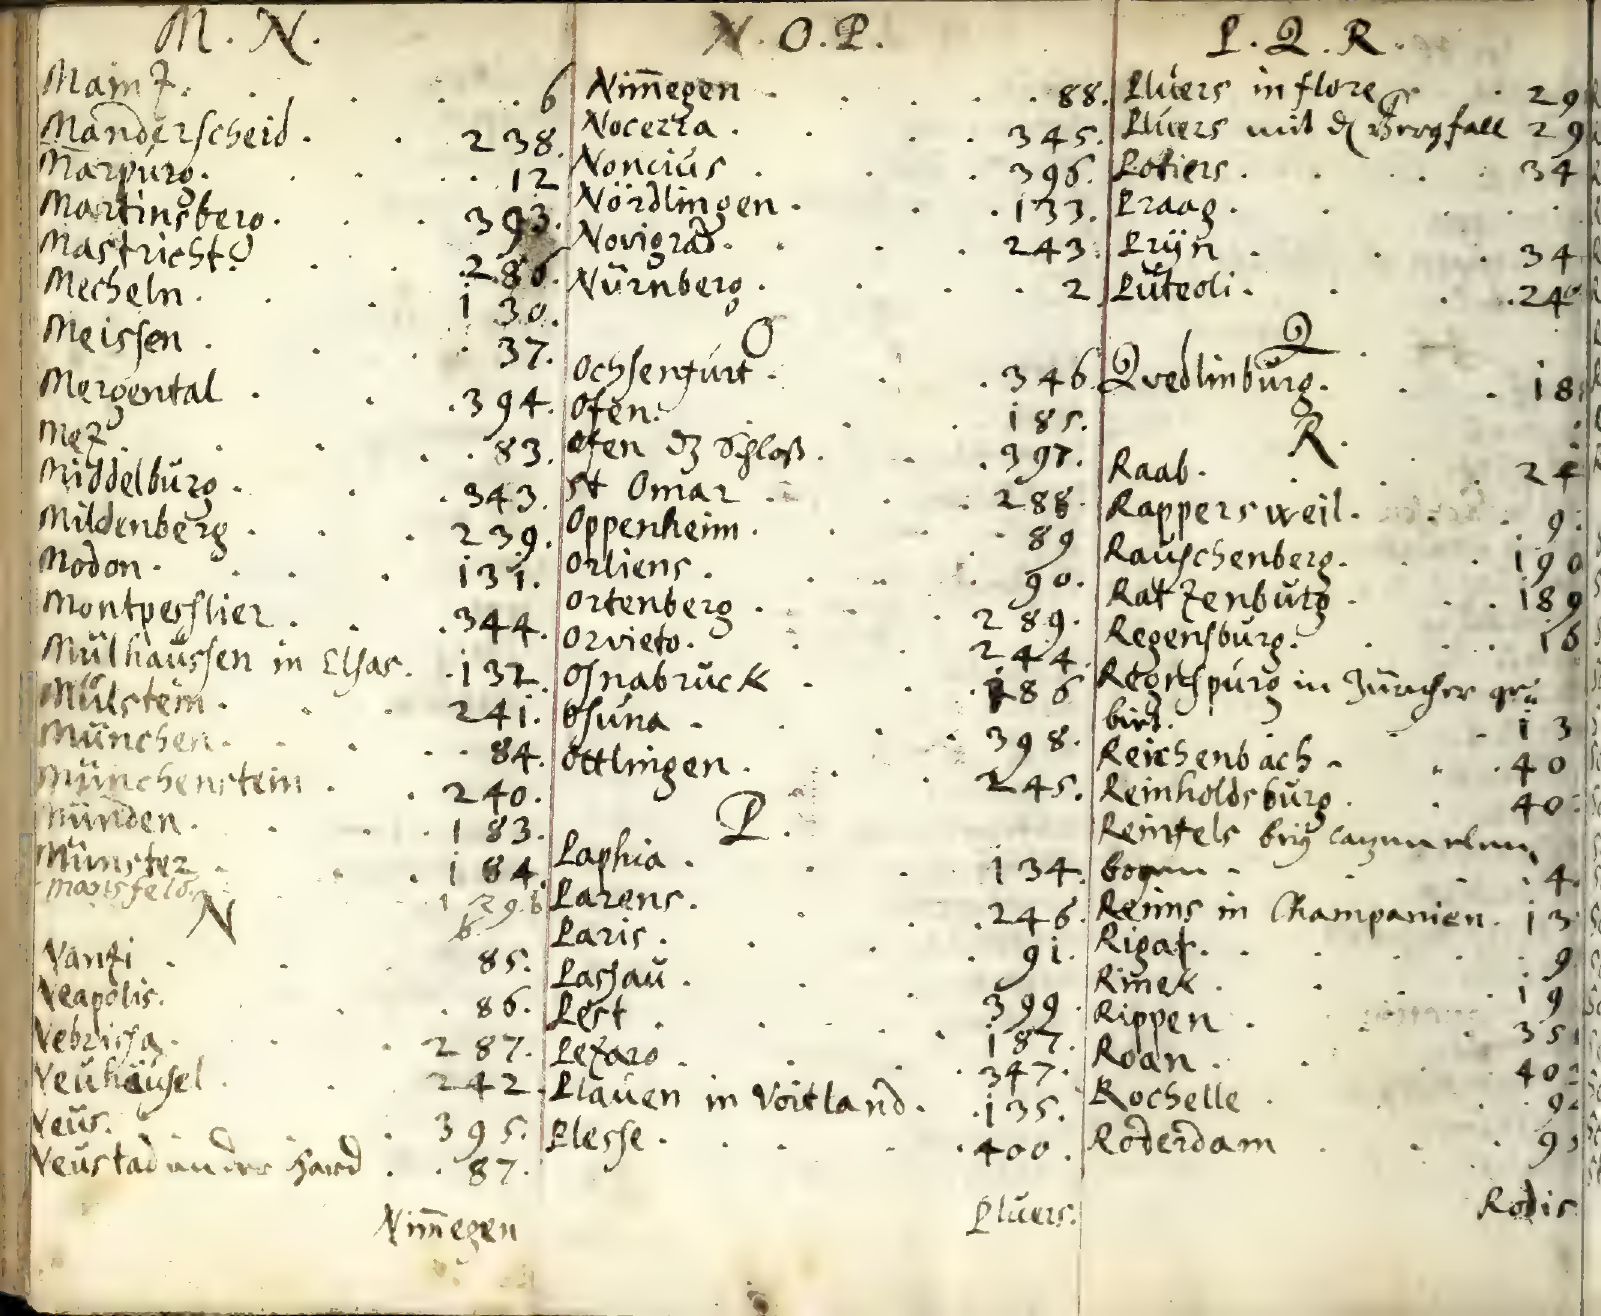 M. N.
Maintz. 6
Manderscheid. 238.
Marpurg. 12
Martinsberg. 393.
Mastricht. 286.
Mecheln. 130.
Meissen. 37.
Mergental. 394.
Metz. 83.
Middelburg. 343.
Mildenberg. 239.
Modon. 131.
Montpesslier. 344.
Mülhaussen in Elsas. 132.
Mülstein. 241.
München. 84.
Münchenstein. 240.
Münden. 183.
Münster. 184.
Mansfeld.
N
Nantzi. 85.
Neapolis. 86.
Nebrissa. 287.
Neuheusel. 242.
Neus. 395.
Neustad an der Hard. 87.
Nim̄egen
N. O. P.
Nim̄egen. 88.
Nocerra. 345.
Noncius. 396.
Nördlingen. 133.
Novigrad. 243.
Nürnberg. 2
O
Ochsenfurt. 346.
Ofen. 185.
Ofen dz Schloß. 397.
St Omar. 288.
Oppenheim. 89
Orliens. 90.
Ortenberg. 289.
Orvieto. 244.
Osnabruck. 186
Osuna. 398.
Ottlingen. 245.
P.
Paphia. 134.
Parens. 246.
Paris. 91.
Passau. 399.
Pest. 187.
Pezaro. 347.
Plauen in Voitland. 135.
Plesse. 400.
Pluers.
P. Q. R.
Pluers in flore 29
Pluers mit d Bergfall 29
Potiers. 34
Praag.
Prÿn. 34
Puteoli. 24
Q
Qvedlinburg. 18
R.
Raab. 24
Rappersweil. 9
Rauschenberg. 190
Ratzenburg. 189
Regensburg. 16
Regnspurg in Züricher ge=
biet. 13
Reichenbach. 40
Reinholdsburg. 40
Reinfels beÿ Catzenelen
bogen. 4
Reims in Champanien. 13
Rigaf. 9
Rinek. 19
Rippen. 35
Roan. 40
Rochelle. 9
Roterdam. 9
Rodis